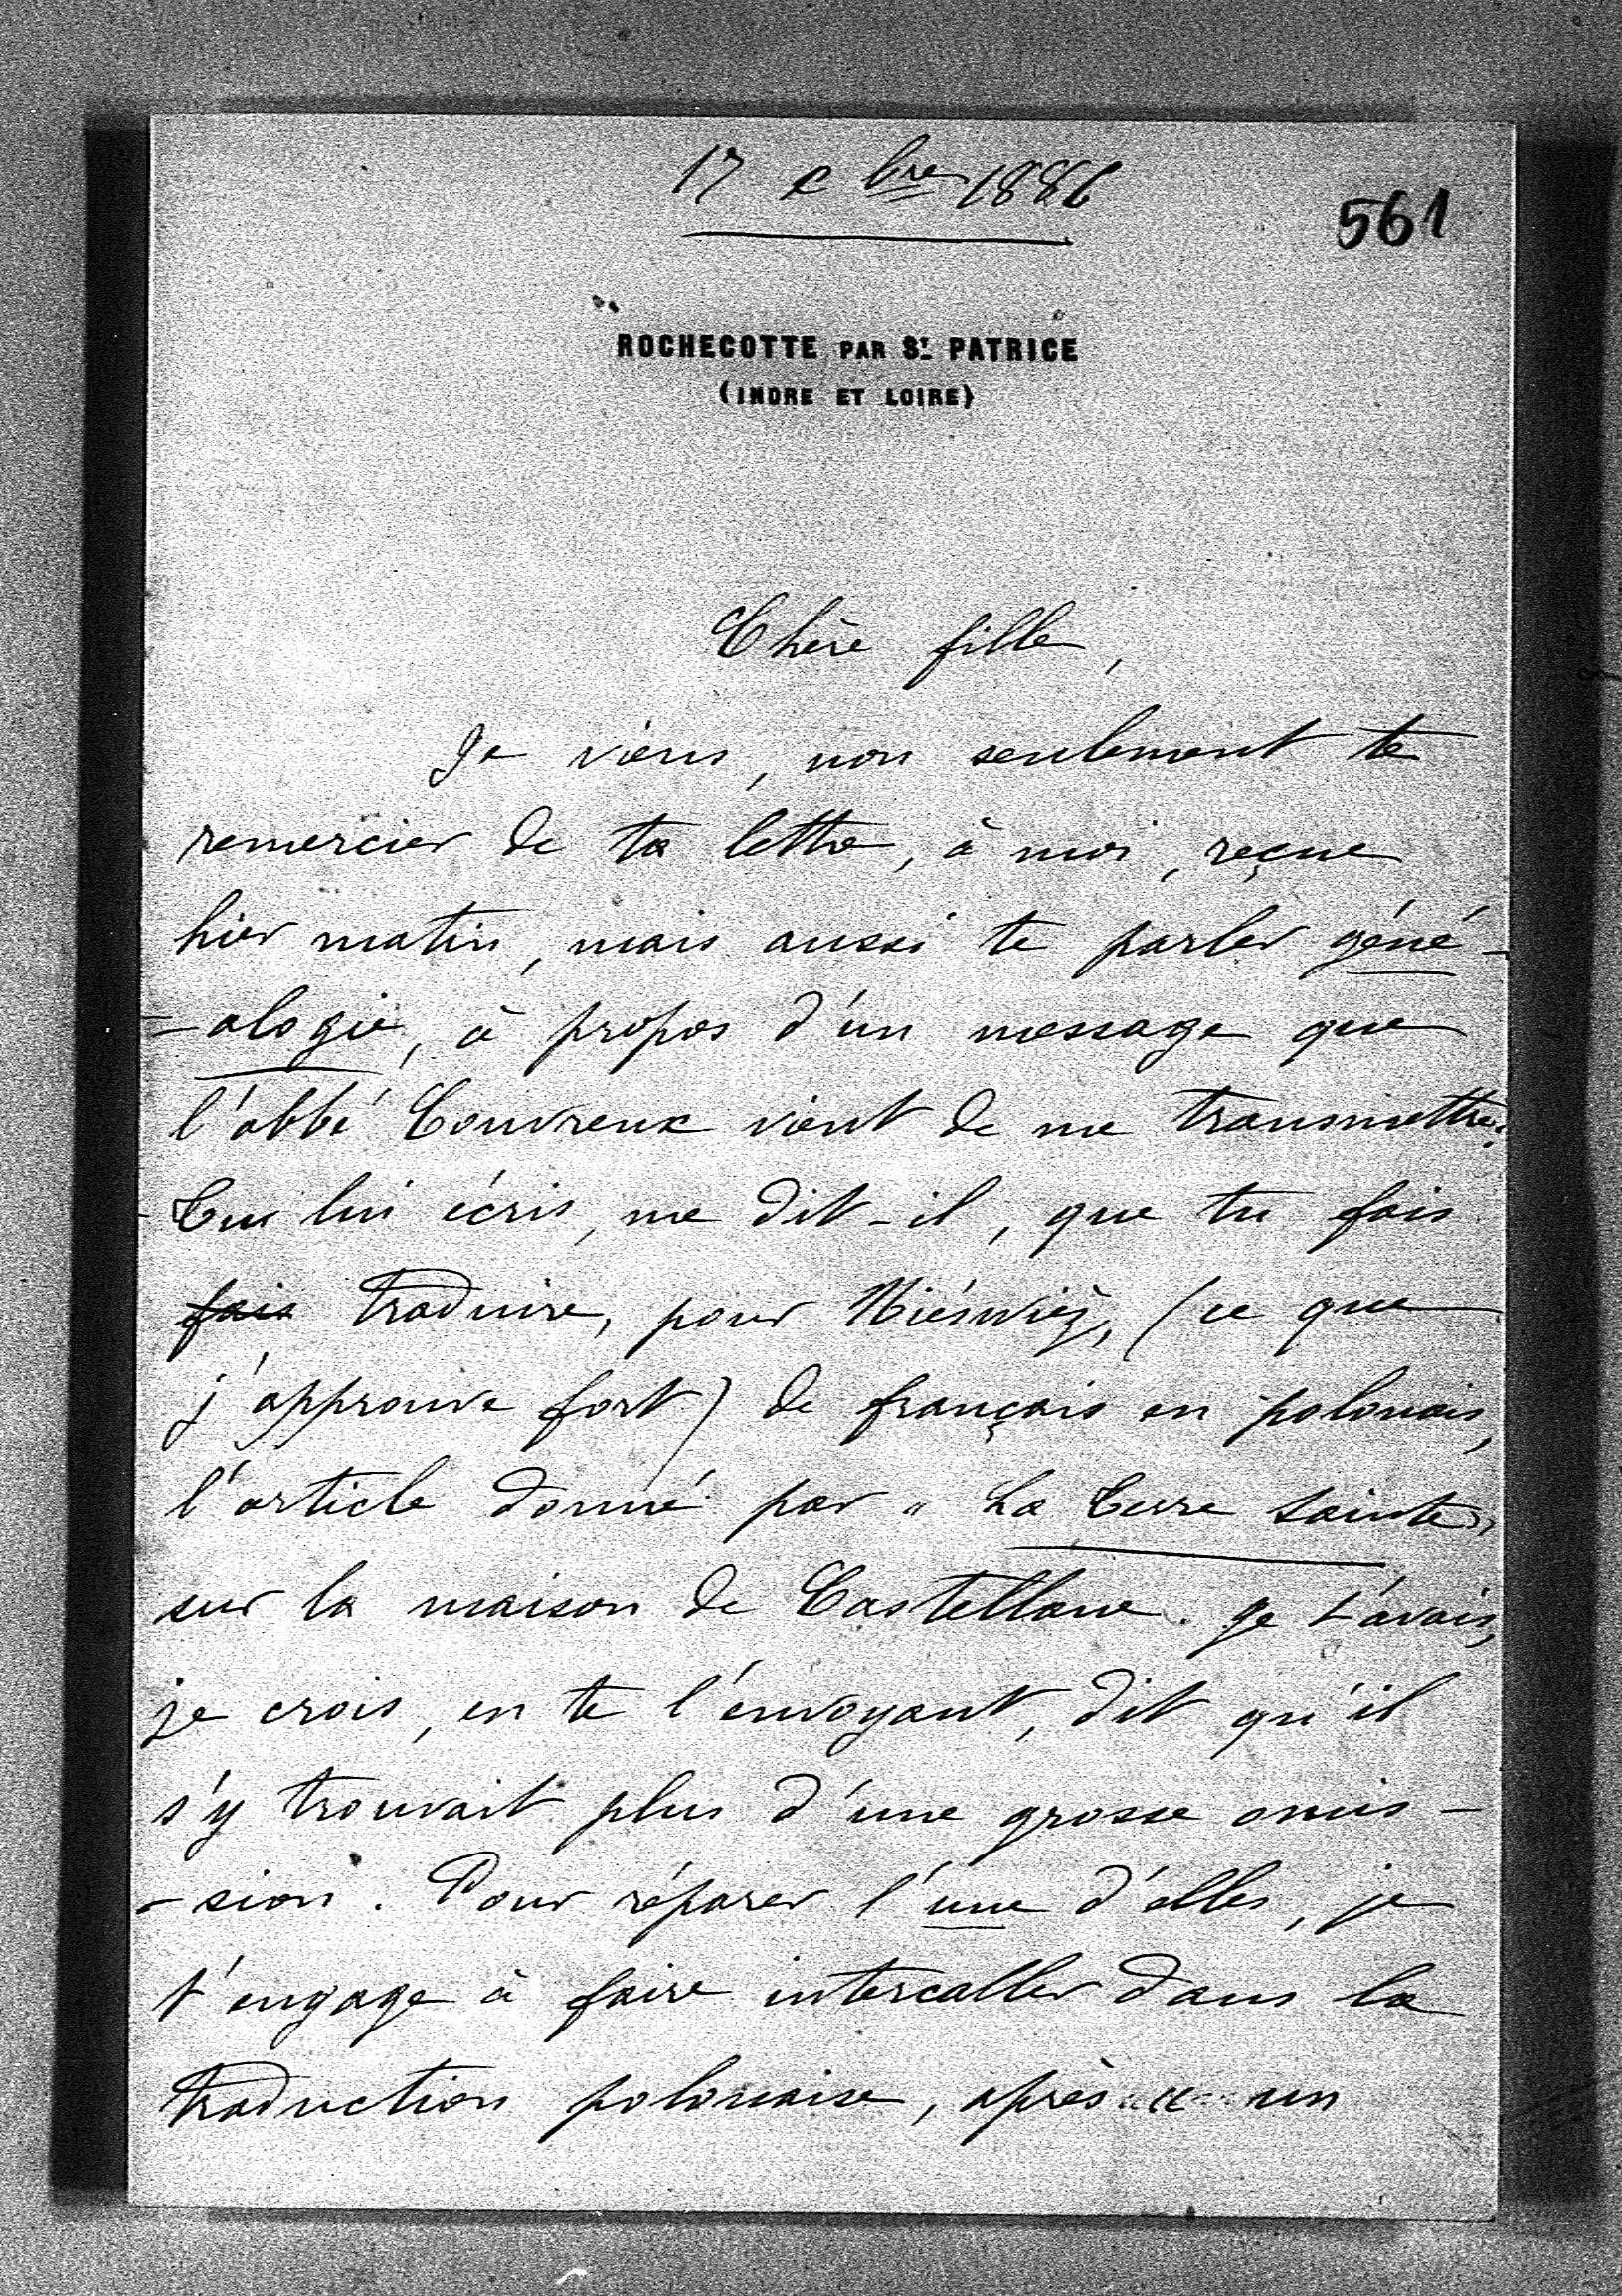 17 xbre 1886
561
ROCHECOTTE PAR St. PATRICE
(INDRE ET LOIRE)
Chère fille,
Je viens, non seulement te
remercier de ta lettre, à moi, reçue
hier matin, mais aussi te parler géné-
-alogie, à propos d'un message que
l'abbé Couvreux vient de me transmettre.
Tu lui écris, me dit-il, que tu fais
fais traduire, pour Niéswiéz, (ce que
j'approuve fort) de français en polonais,
l'article donné par "La Terre Sainte"
sur la maison de Castellane. Je t'avais,
je crois, en te l'envoyant, dit qu'il
s'y trouvait plus d'une grosse omis-
-sion. Pour réparer l'une d'elles, je
t'engage à faire intercaller dans la
traduction polonaise, après " un